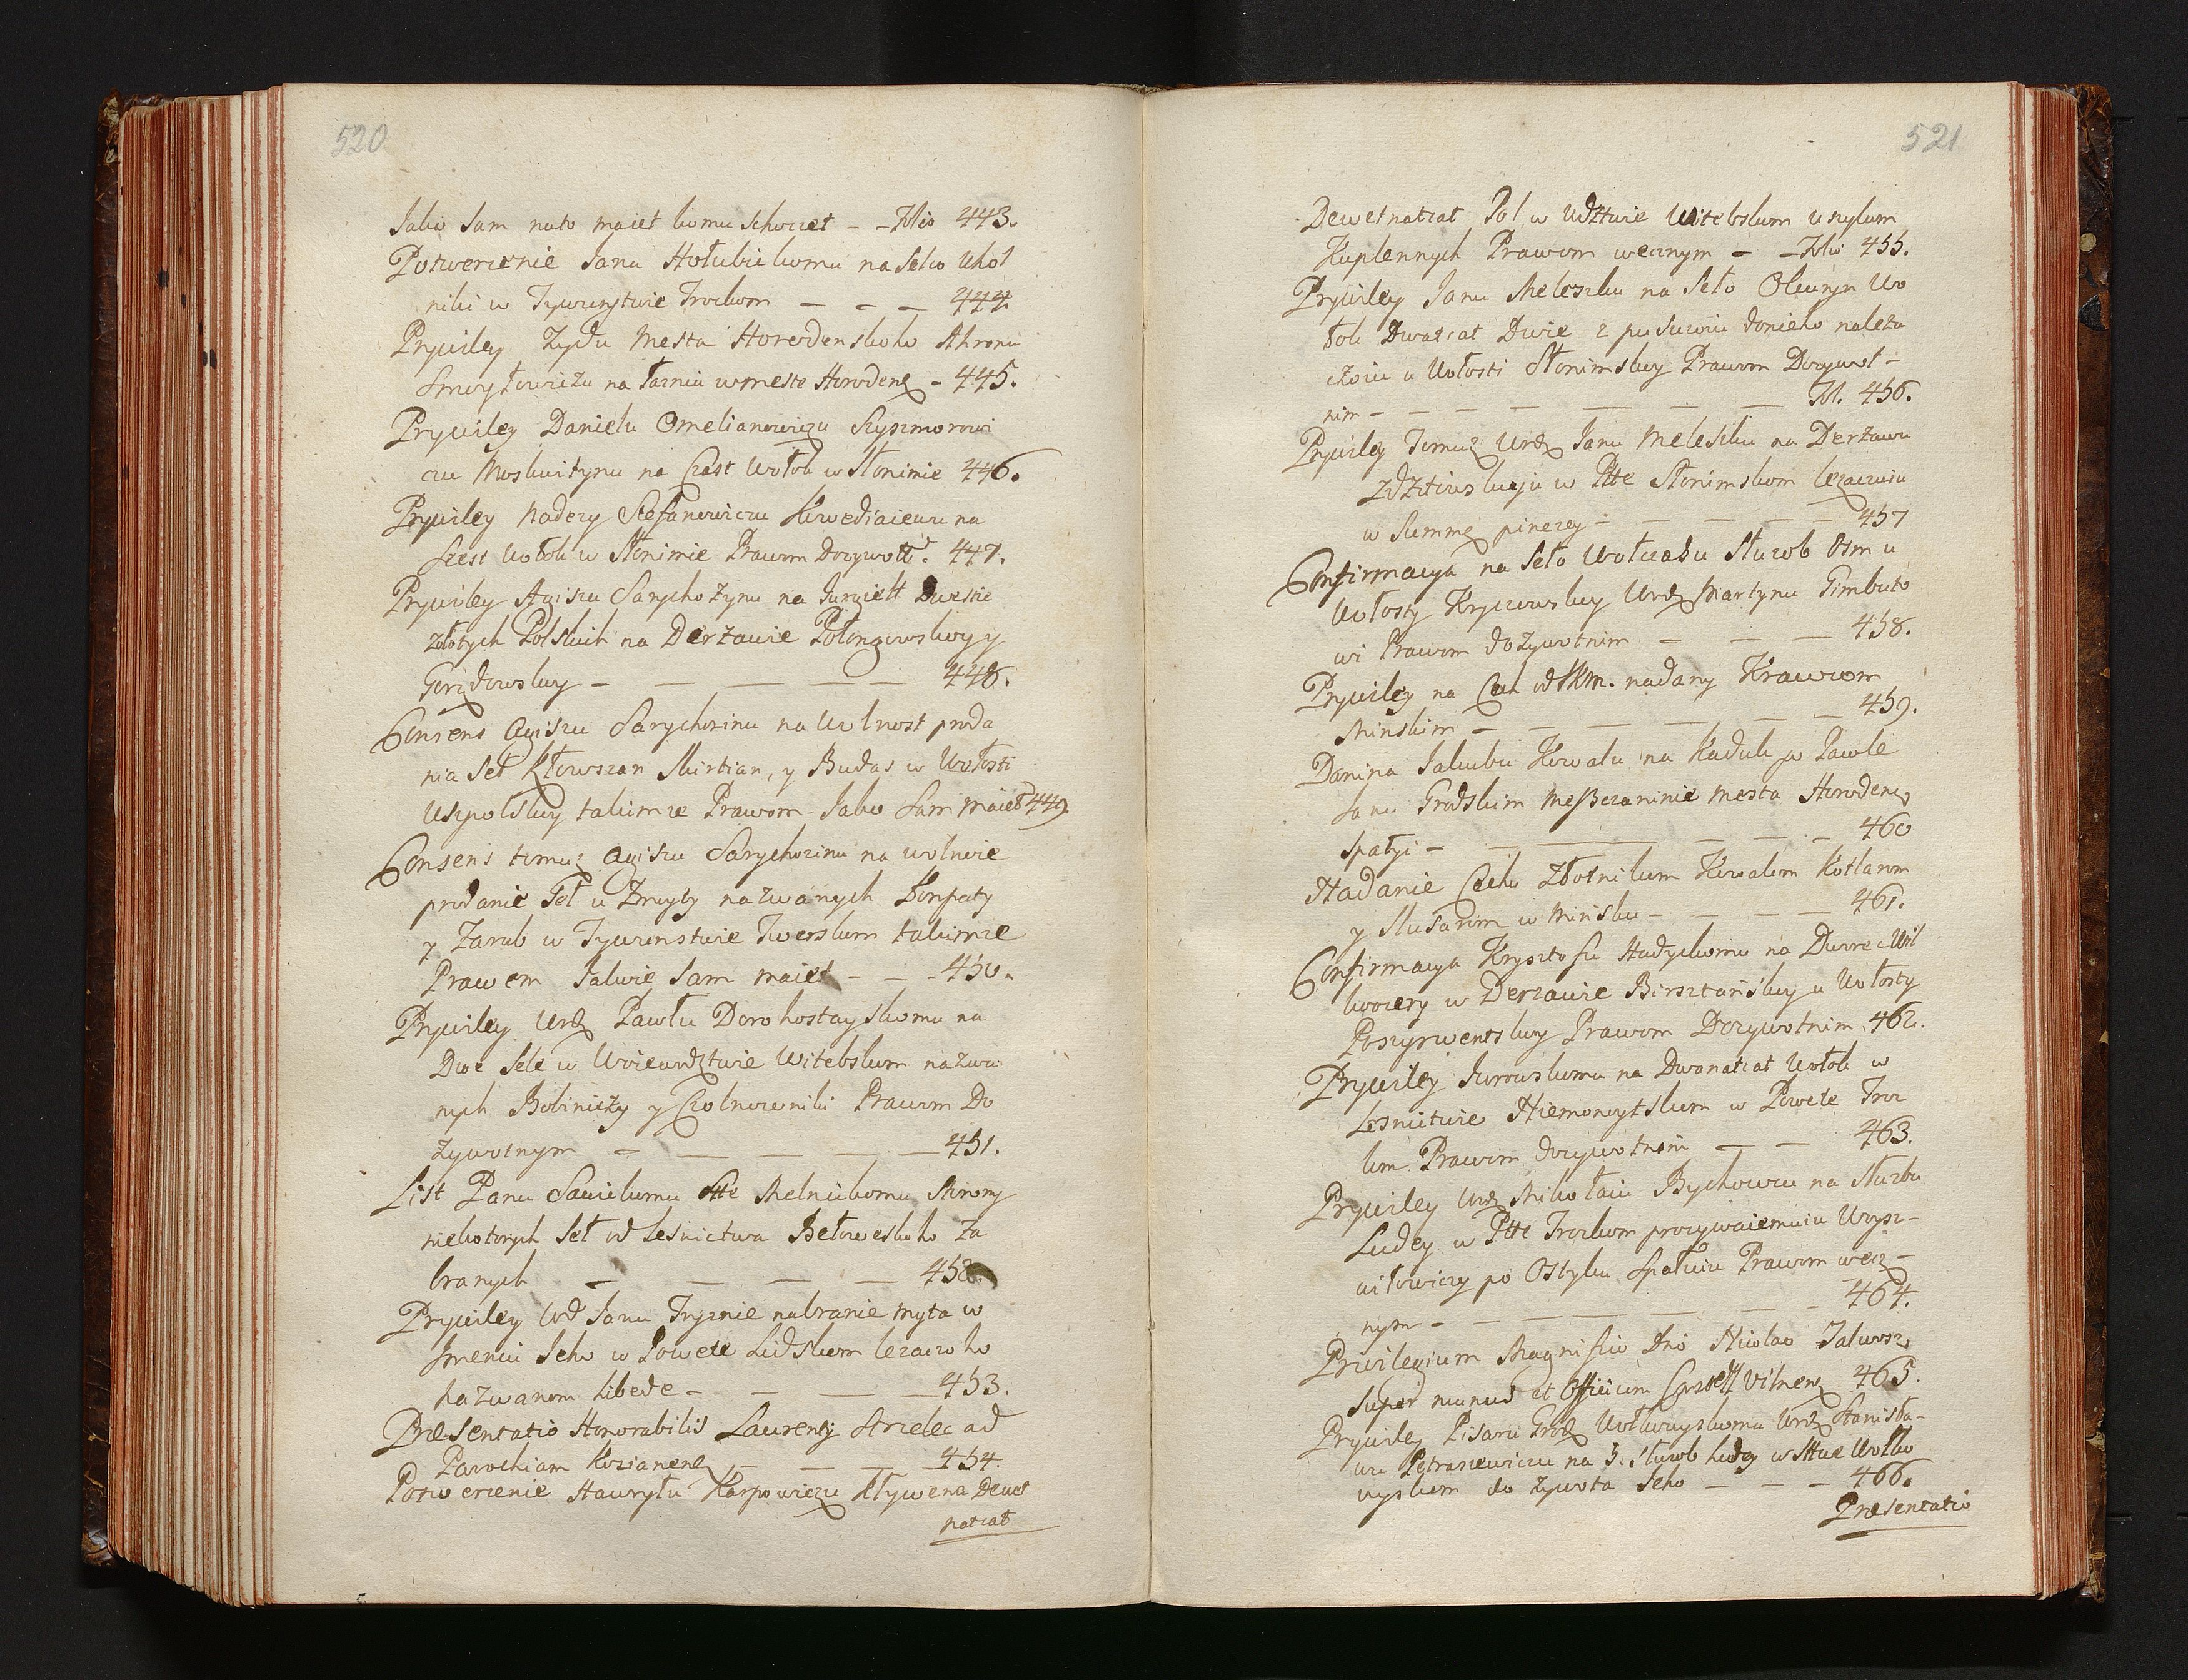 520
Jako sam na to maiet komu schoczet – – Folio 443.
Potwerżenie Janu Hołubickomu na Selco Ukol
niki w Tywunstwie Trockom – – – 444.
Prywiley Zydu Mesta Horodenskoho Ahronu
Smoyłowiczu na łazniu w meste Horodenẜ – 445.
Prywiley Danielu Omelianowiczu Szyszmorowi
czu Moskwitynu na Czest Wołok w Słonimie 446.
Prywiley Stefanowiczu na
szest Wołok w Słonimie Prawom Dozywott. 447.
Prywiley Agiszu Sarychożynu na Jurgielt Dwesti
złotych Polskich na Derżawie Połongowskoy y
Gorżdowskoy – – – – – 448.
Consens Agiszu Sarychozinu na Wolnost proda
nia Seł Kłowszan Skirtian, y Budas w Wołosti
Uszpolskoy takim ze Prawom Jako Sam maiet 449.
Consens tomuż Agiszu Sarychozinu na wolnoie
prodanie Seł u Żmoydy nazwanych Konpaty
y Zarub w Tywunstwie Twerskom takimze
Prawem Jakoie Sam maiet – – – 450.
Prywiley Urd Pawłu Dorohostayskomu na
Dwe Sele w Woiewodztwie Witebskom nazwa
nych Bobiniczy y Czolnowniki Prawom Do
żywotnym – – – – – 451.
List Panu Sawickomu Stte Melnickomu Storony
niekotorych Seł od Lesnictwa Bełoweskoho Za
branych – – – – 452.
Prywiley Urd Janu Tryznie nabranie Myta w
Jmeniu Jeho w Powete Lidskom lezaczoho
nazwanom Libede – – – – 453.
Præsentatio Honorabilis Laurenty Strzelec ad
Parochiam Kozianenẜ – – – – 454.
Potwerżenie Hawryłu Karpowiczu Kływe na Dewet
natcat
521
Dewetnatcat Pol w Wdztwie Witebskom u sylum
Kuplennych Prawom wecznym – – Folio 455.
Prywiley Janu Meleszku na Seło Olchwyn Wo
łok Dwatcat Dwie z pusczoiu do nieho należa
czoiu u Wołosti Słonimskoy Prawom Dozywot –
nim – – – – – – – Fol. 456.
Prywiley Tomuż Urd Janu Meleszku na Derżawu
Zdzitowskuju w Ptte Słonimskom lezaczuiu
w Summẜ pinezey – – – – – 457
Confirmacya na Seło Wołczasku Służob Osm u
Wołosty Kryczowskoy Urd Martynu Gimbuto
wi Prawom dożywotnim – – – 458.
Prywiley na Cech od JKM. nadany Krawcom
Minskim – – – – – – 459.
Danina Jakubu Kowalu na Kaduk po Pawle
Grodskim Meszczaninie mesta Horodenẜ
spałyi – – – – – – 460
Nadanie Cechu Złotnikom Kowalom Kotlarom
y Slusarom w Minsku – – – – 461.
Confirmacya Krysztofu Hadyckomu na Dworec Wil
koczery w Derzawie Birsztańskoy u Wołosty
Poszyrwentskoy Prawom Dozywotnim. 462.
Prywiley Jurowskomu na Dwanatcat Wołok w
Lesnictwie Niemonoytskom w Powete Troc
kom Prawom dozywotnim – – 463.
Prywiley Urd Mikołaiu Bychowcu na Służbu
Ludey w Ptte Trockom prozywaiemuiu Urysz –
wiłowiczy po Ostyku Spałuiu Prawom wecz –
nym – – – – – – – 464.
Privilegium Magnifico Dno Nicolao Jalwosz,
super munus et Officium Castell Vilnenẜ 465.
Prywiley Pisaru Grod Wołkowyskomu Urd Stanisła –
wu Petraszewiczu na 3. służob ludey w Sttwe Wołko
wyskom do żywota Jeho – – – 466.
Præsentatio